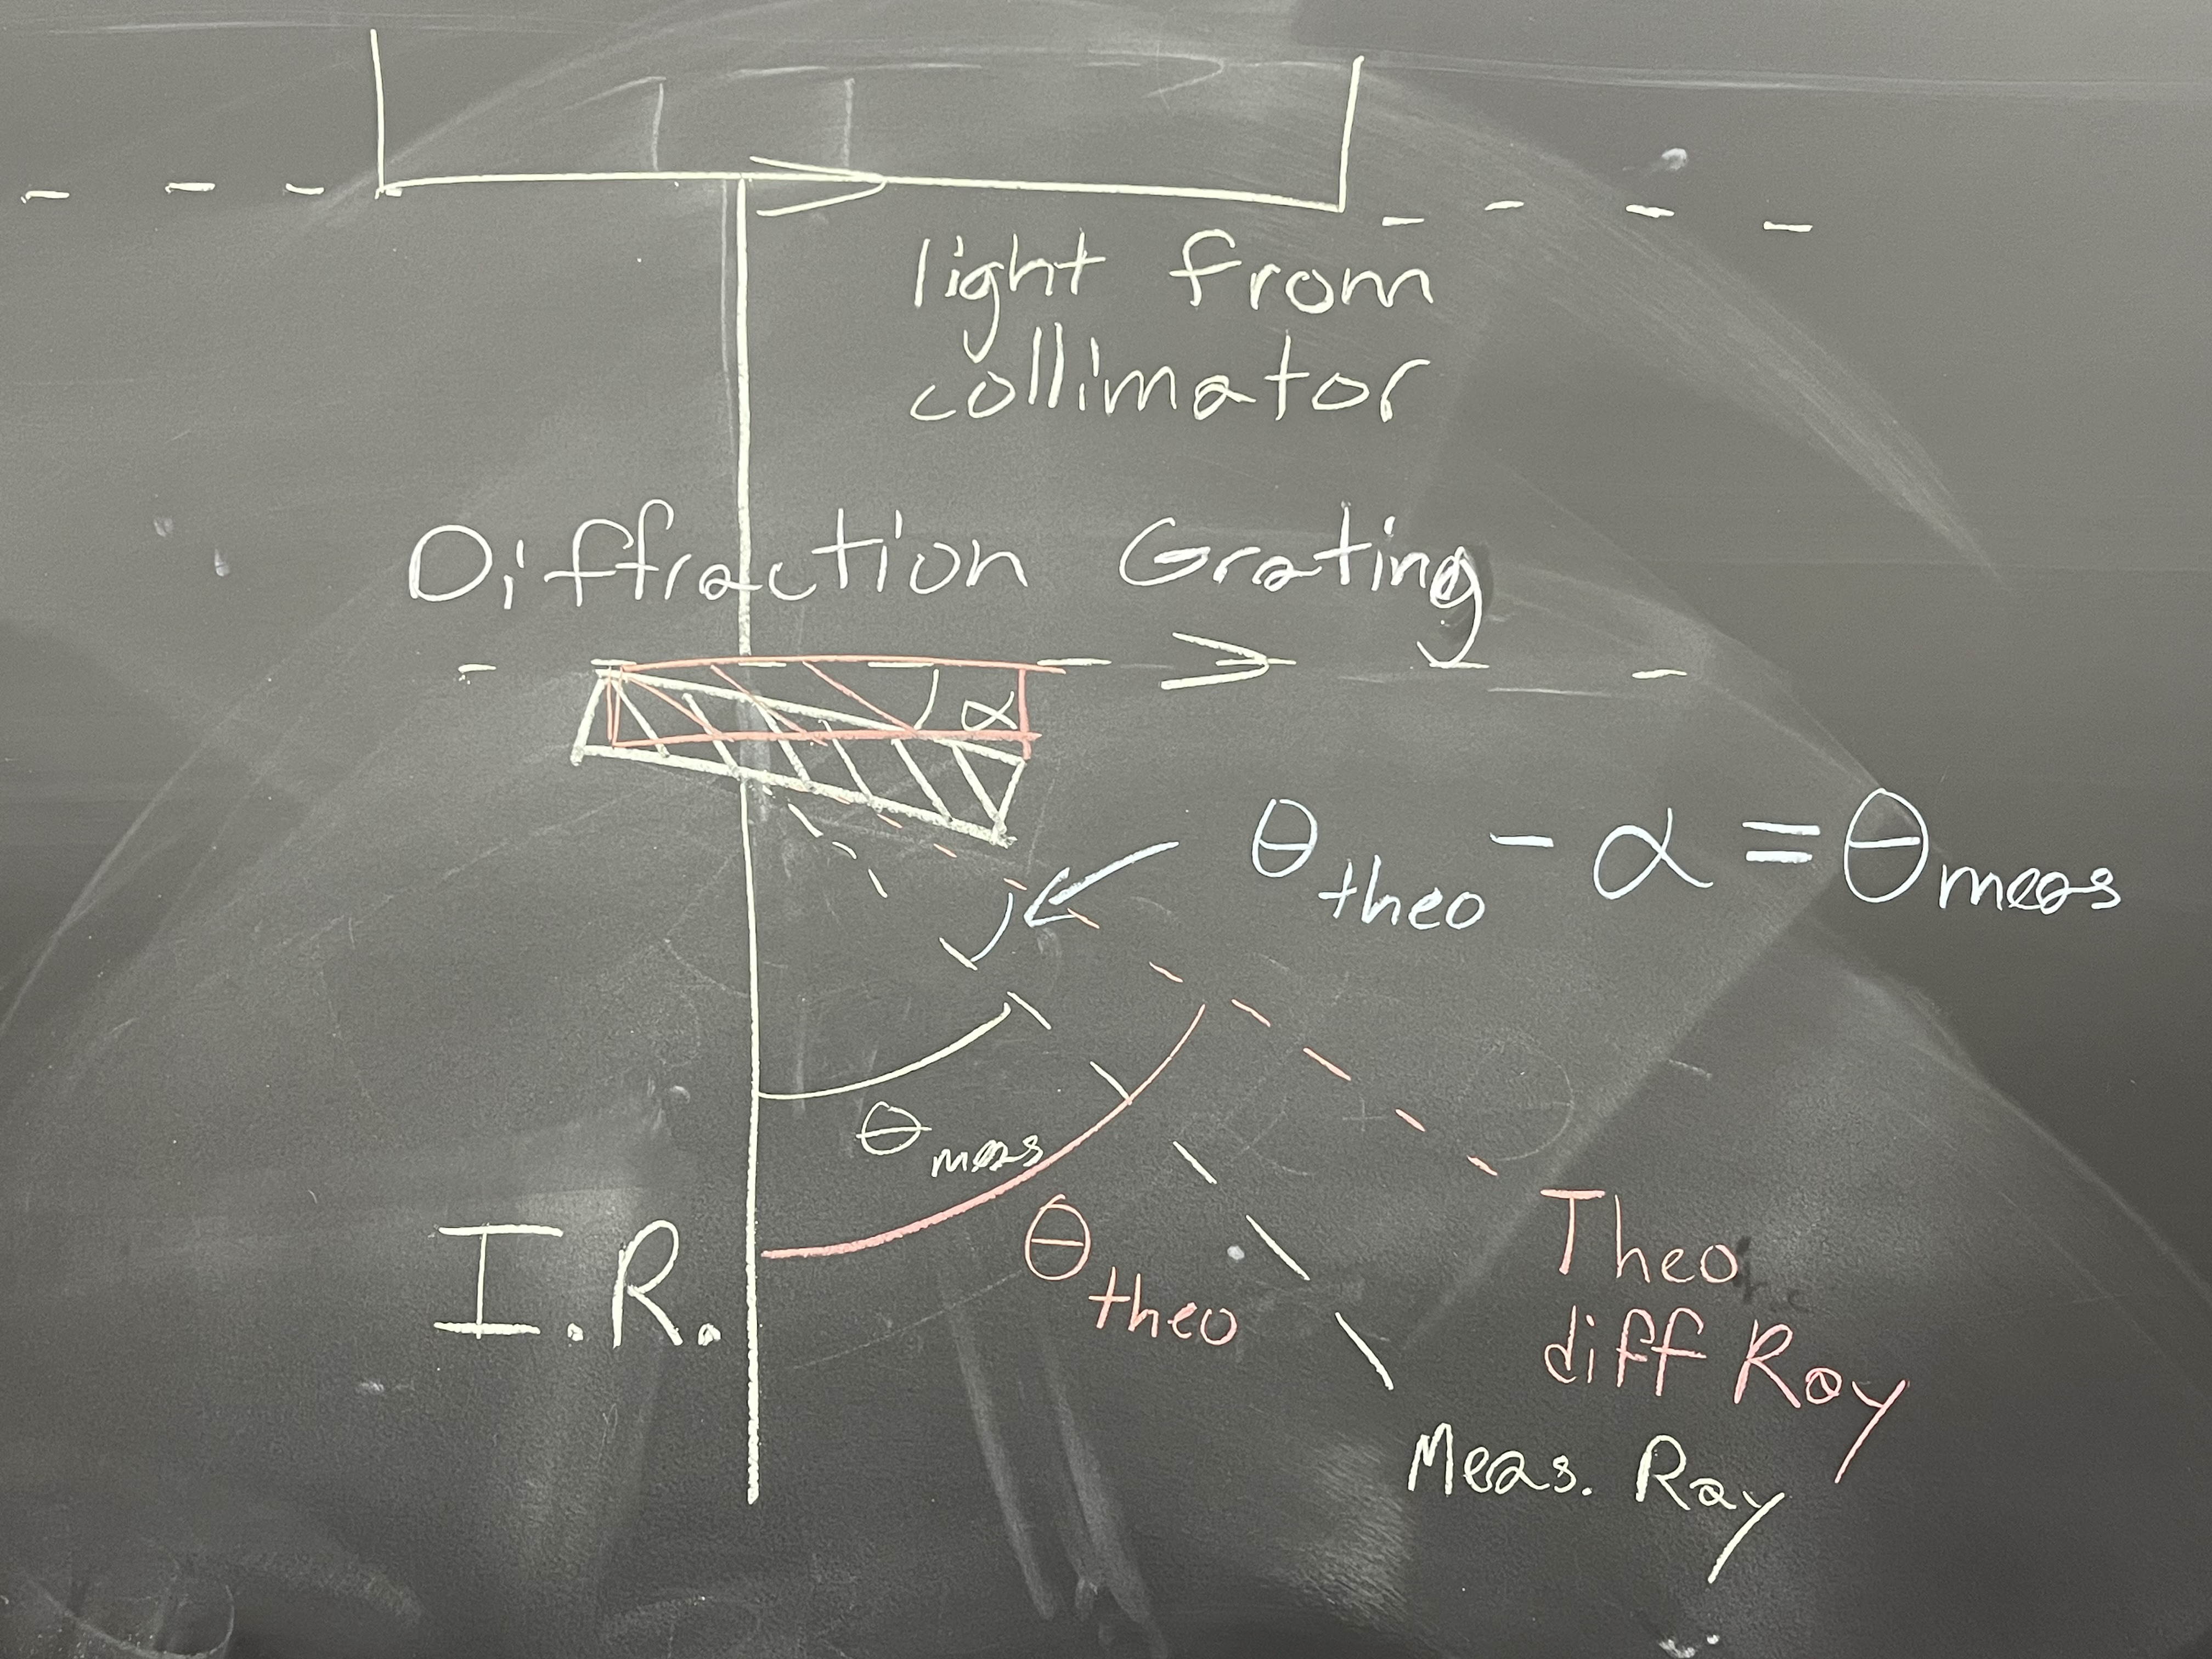 light from
collimator
Diffraction Grating
α
θtheo - α = θmeas
θmeas
I.R.
θtheo
Theo
diff Ray
Meas. Ray